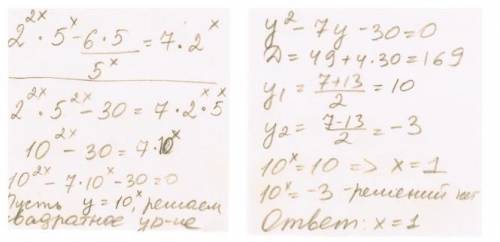 2^{2x} · 5^x - \frac{6·5}{5^x} = 7·2^x
2^{2x} · 5^{2x} - 30 = 7·2^x·5^x
10^{2x} - 30 = 7·10^x
10^{2x} - 7·10^x - 30 = 0
Пусть y = 10^x, решаем
квадратное ур-ие
y^2 - 7y - 30 = 0
D = 49 + 4·30 = 169
y_1 = \frac{7+13}{2} = 10
y_2 = \frac{7-13}{2} = -3
10^x = 10 => x = 1
10^x = -3 - решений нет
Ответ: x = 1